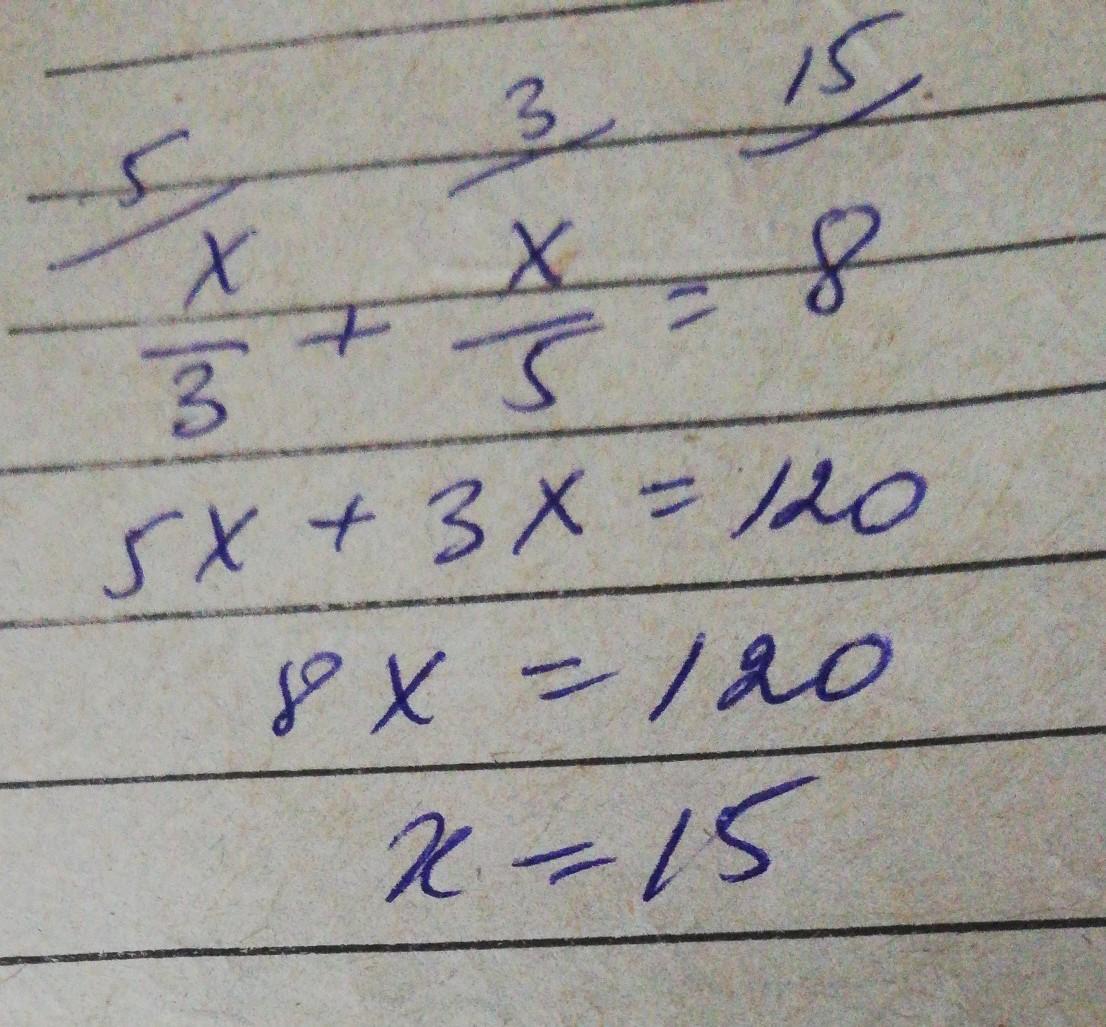 5 3 15
x/3 + x/5 = 8
5x + 3x = 120
8x = 120
x = 15